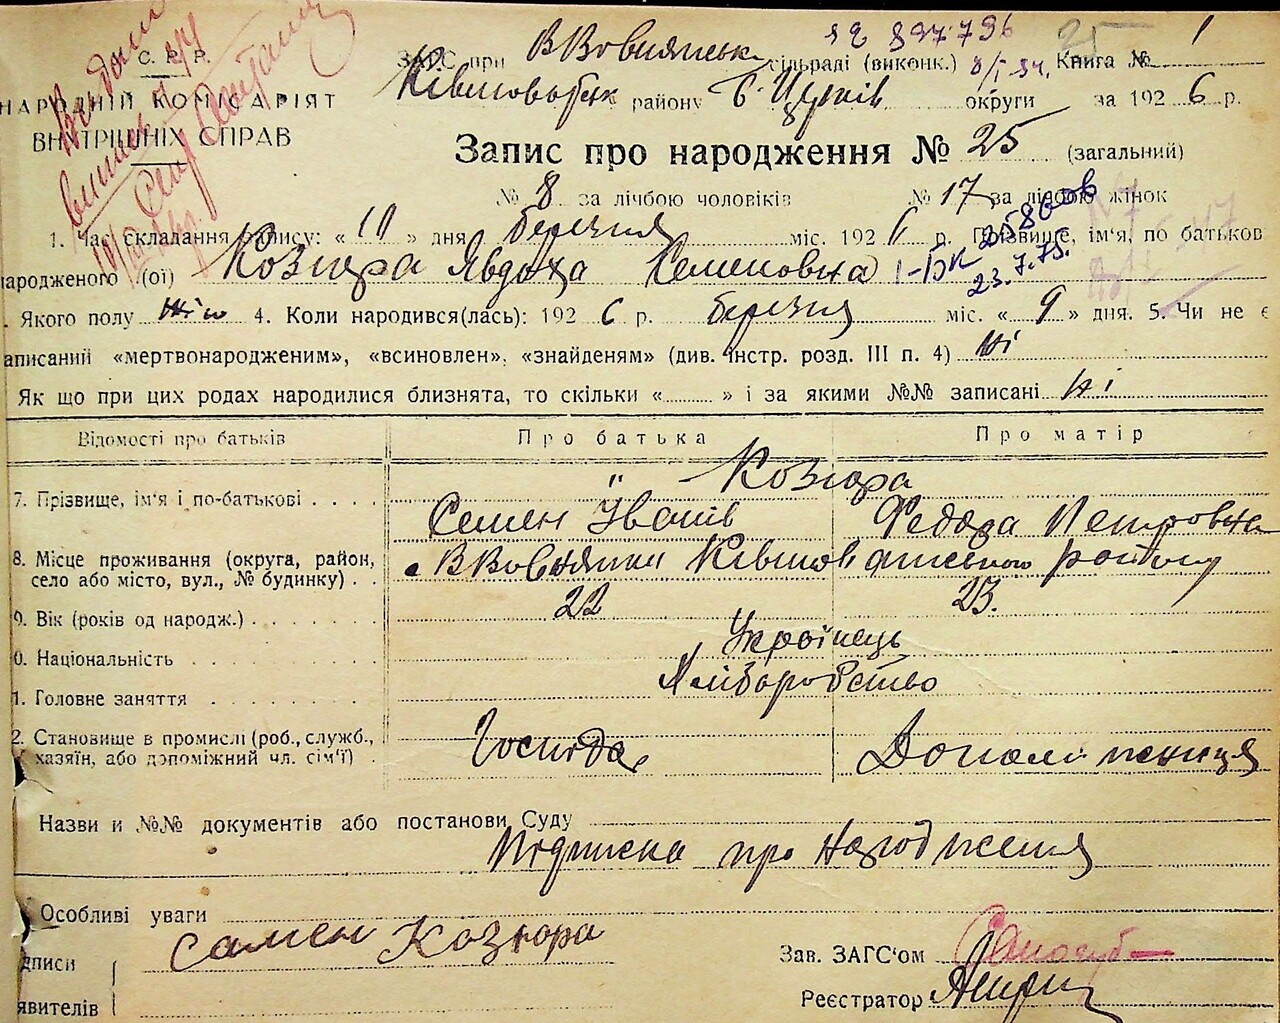 С. Р. Р.
НАРОДНІЙ КОМІСАРІЯТ
ВНУТРІШНІХ СПРАВ
ЗАГС при ВВовнянськ сільраді (виконк.) Книга № 1
25
897.796
Ківшоватськ району Б-Церків округи за 1926 р.
Запис про народження № 25 (загальний)
№ 8 за лічбою чоловіків № 17 за лічбою жінок
1. Час складання запису: «10» дня березня міс. 1926 р. Прізвище, ім'я, по батьков
народженого (ої) Козюра Явдоха Семеновна
І-БК 258000
23.7.75.
Якого полу жін 4. Коли народився(лась): 1926 р. березня міс. «9» дня. 5. Чи не є
записаний «мертвонародженим», «всиновлен», «знайденям» (див. інстр. розд. III п. 4) ні
Як що при цих родах народилися близнята, то скільки «......» і за якими №№ записані ні
Відомості про батьків Про батька Про матір
7. Прізвище, ім'я і по-батькові . . . . " Козюра
Семен Іванів Федора Петровна
8. Місце проживання (округа, район, село або місто, вул., № будинку) . .
с ВВовнянки Ківшоватського району
9. Вік (років од народж.) . . . . . . . 22 23.
0. Національність . . . . . . . . . . Українець
1. Головне заняття . . . . . . . . . Хліборобство
2. Становище в промислі (роб., служб., хазяїн, або допоміжний чл. сім'ї) .
Господар Допоміжниця
Назви и №№ документів або постанови Суду
Підписка про народження
Особливі уваги
Семен Козюра
дписи
явителів
Зав. ЗАГС'ом
Реєстратор